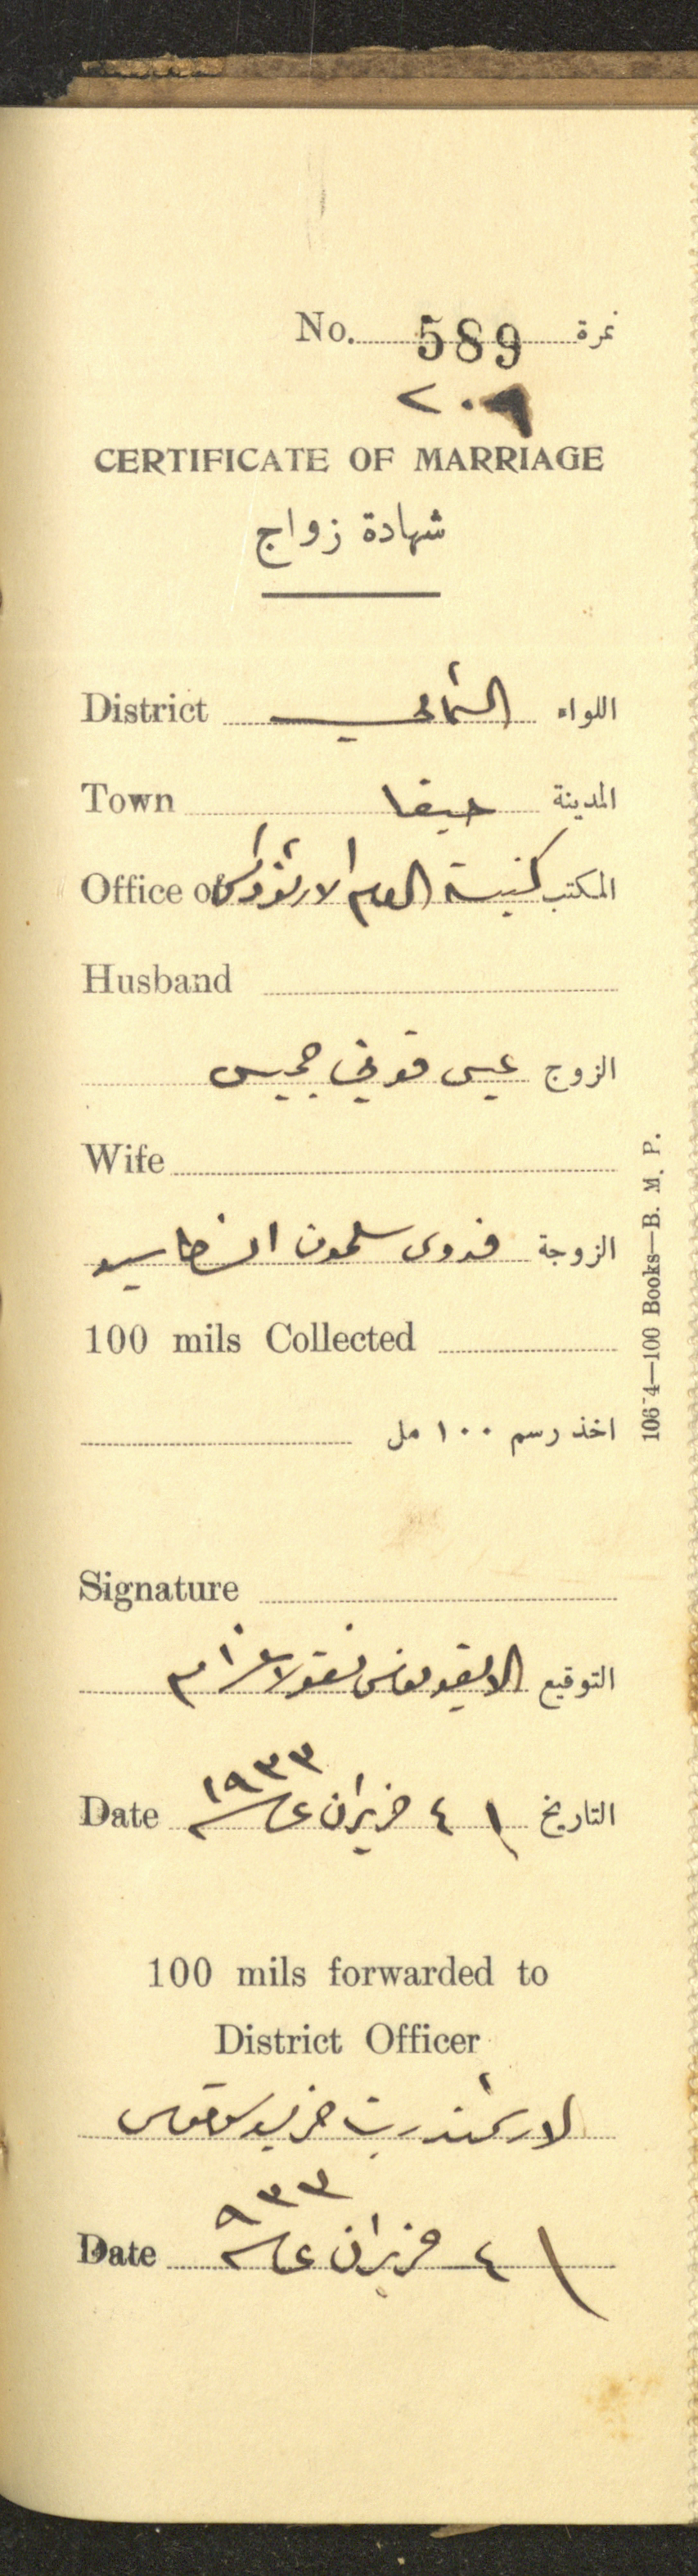 No. 589 نمرة
٢٠٩
CERTIFICATE OF MARRIAGE
شهادة زواج
District الشمالي اللواء
Town حيفا المدينة
Office of كنيسة الروم الارثوذكس المكتب
Husband
الزوج عيسى
Wife
الزوجة فدوى سلمون
100 mils Collected
اخذ رسم ١٠٠ مل
Signature
التوقيع الايقونوموس نقولا
Date ٤ حزيران ١٩٣٣ التاريخ
100 mils forwarded to
District Officer
الارشمندريت
Date ٤ حزيران ٩٣٣
106 4—100 Books—B. M. P.